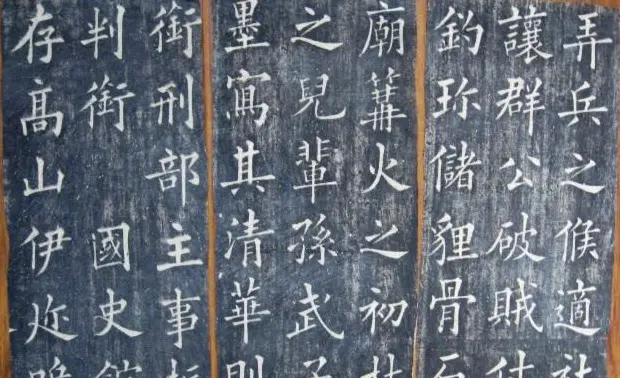 弄兵之候適
讓群公破賊
釣珎儲貍骨
廟篝火之初
之兒輩孫武子
墨寫其清華則
銜刑部主事
判銜 國史館
存髙山伊迩